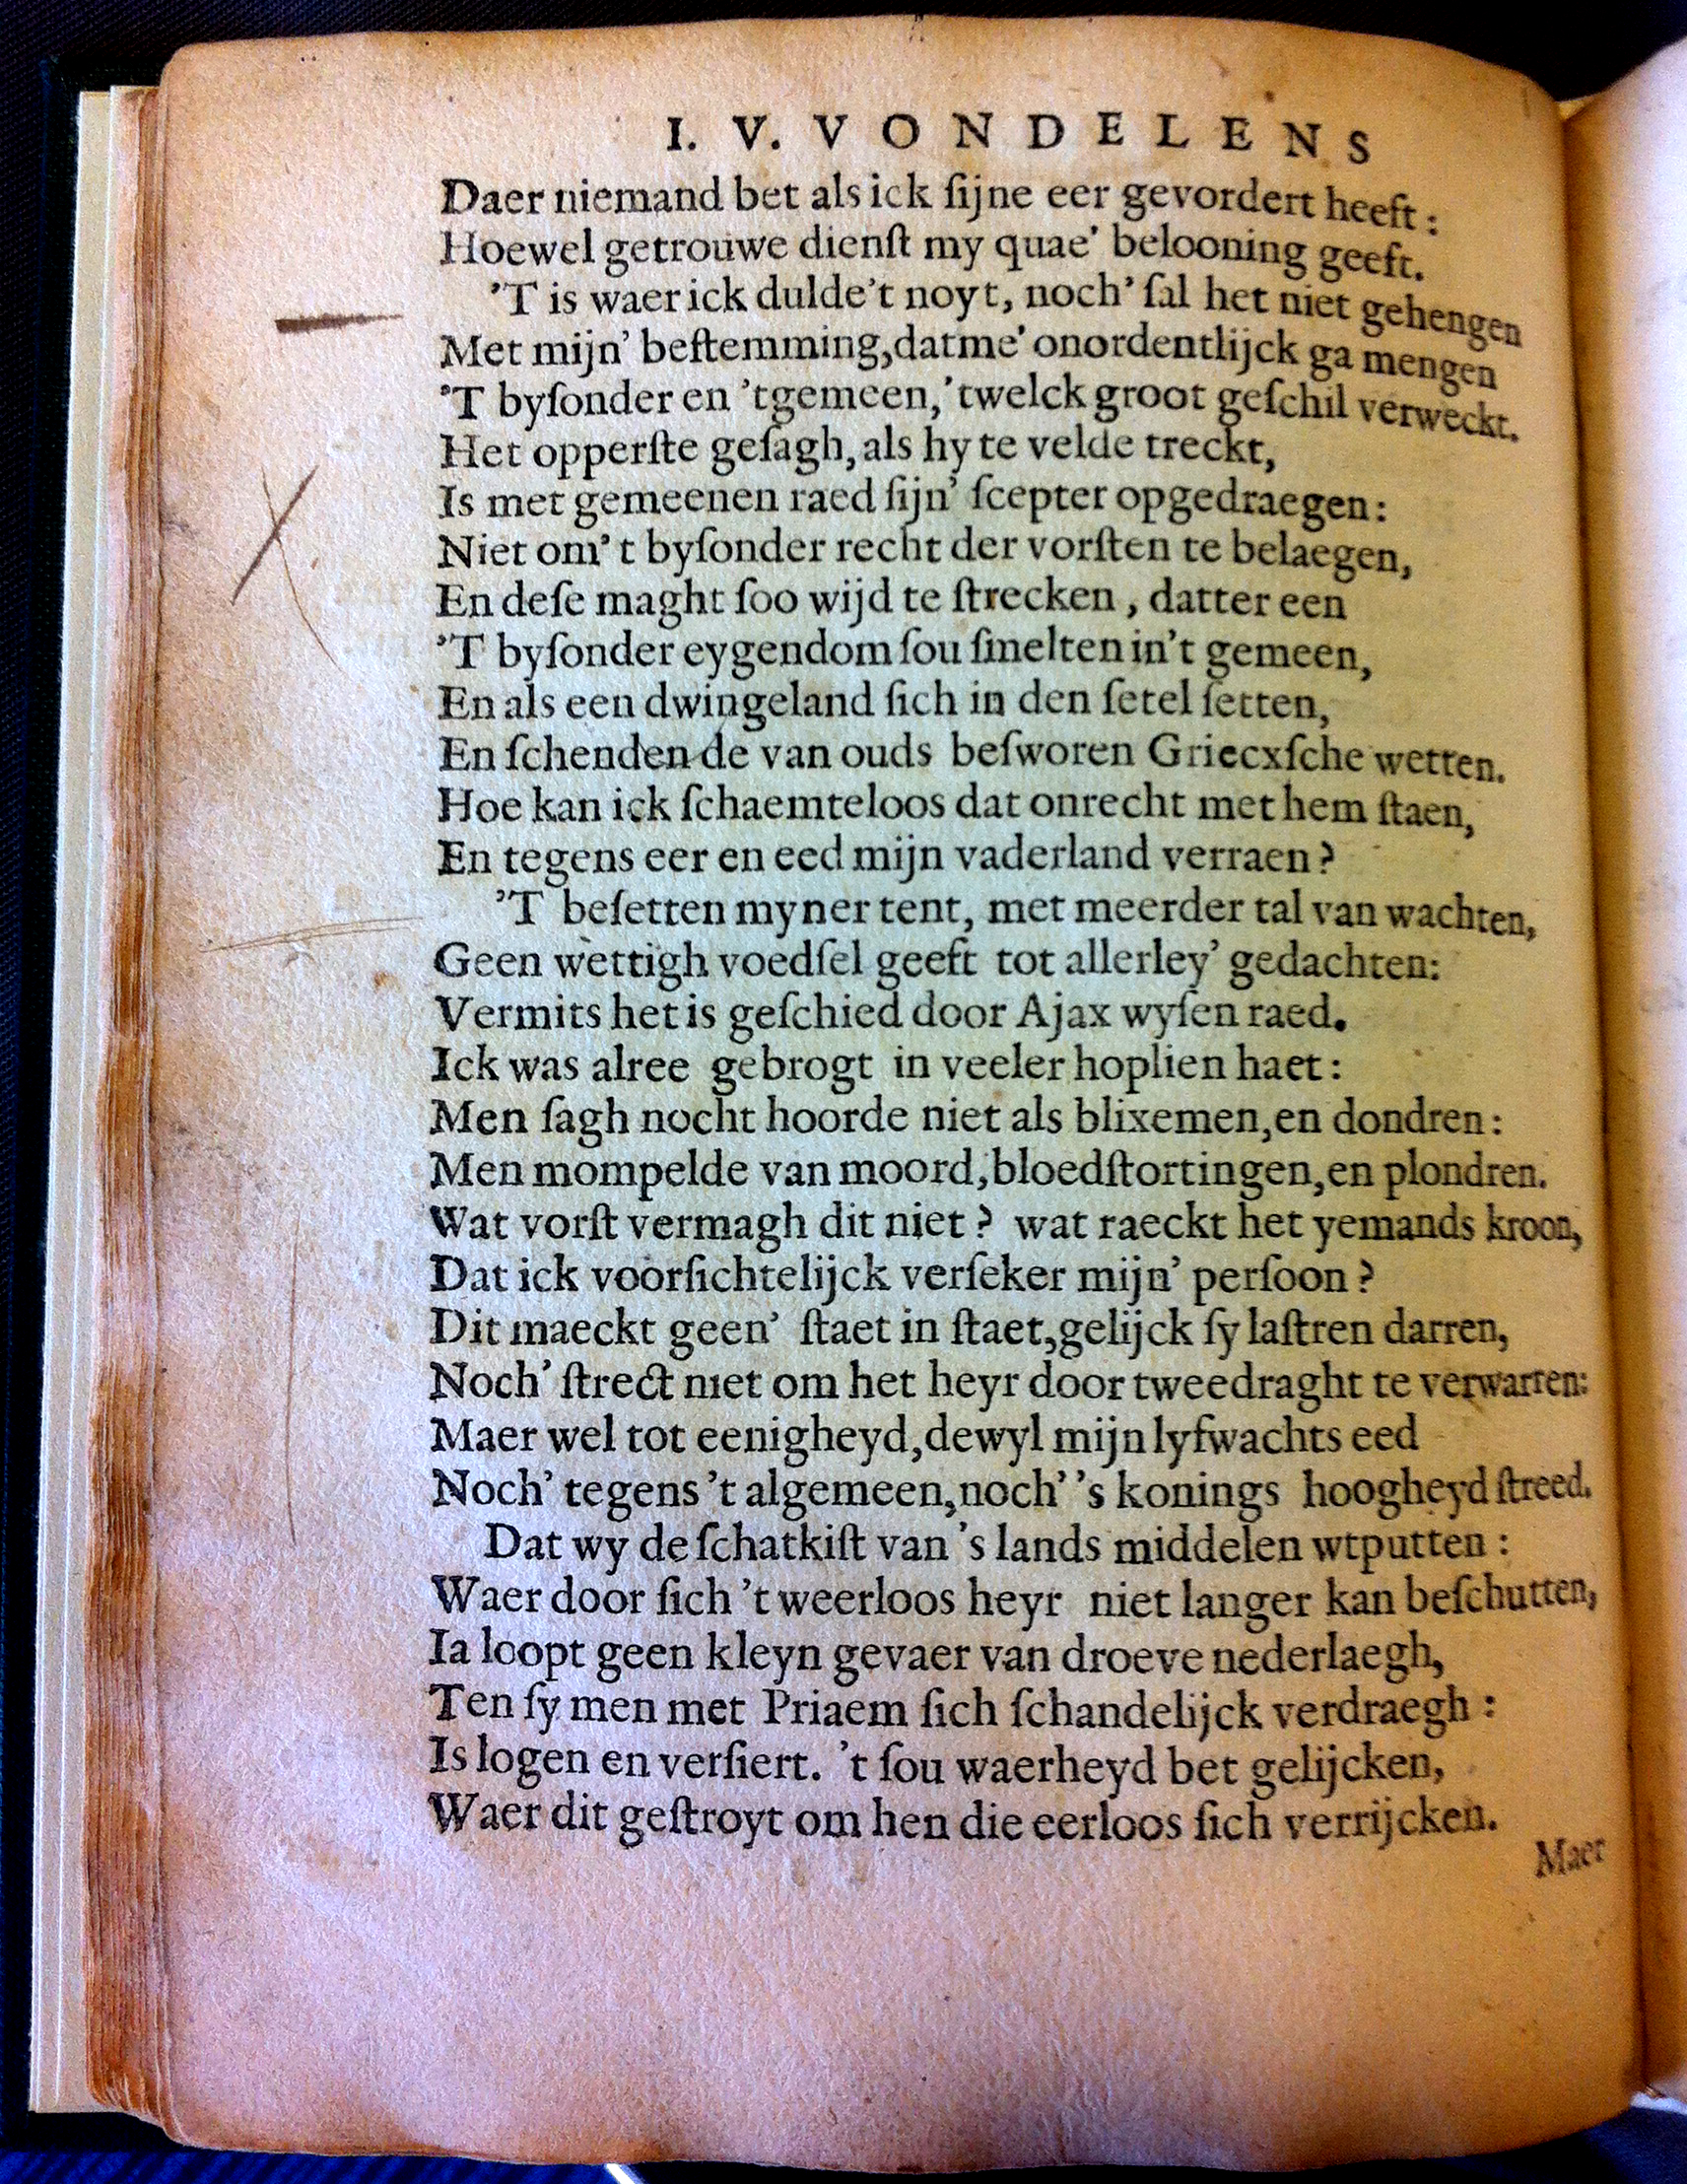 I. V. VONDELENS
Daer niemand bet als ick ſijne eer gevordert heeft:
Hoewel getrouwe dienſt my quae' belooning geeft.
'T is waer ick dulde't noyt, noch' ſal het niet gehengen
Met mijn' beſtemming, datme' onordentlijck ga mengen
'T byſonder en 'tgemeen, 'twelck groot geſchil verweckt.
Het opperſte geſagh, als hy te velde treckt,
Is met gemeenen raed ſijn' ſcepter opgedraegen:
Niet om't byſonder recht der vorſten te belaegen,
En deſe maght ſoo wijd te ſtrecken, datter een
'T byſonder eygendom ſou ſmelten in't gemeen,
En als een dwingeland ſich in den ſetel ſetten,
En ſchenden de van ouds beſworen Griecxſche wetten.
Hoe kan ick ſchaemteloos dat onrecht met hem ſtaen,
En tegens eer en eed mijn vaderland verraen?
'T beſetten myner tent, met meerder tal van wachten,
Geen wettigh voedſel geeft tot allerley' gedachten:
Vermits het is geſchied door Ajax wyſen raed.
Ick was alree gebrogt in veeler hoplien haet:
Men ſagh nocht hoorde niet als blixemen, en dondren:
Men mompelde van moord, bloedſtortingen, en plondren.
Wat vorſt vermagh dit niet? wat raeckt het yemands kroon,
Dat ick voorſichtelijck verſeker mijn' perſoon?
Dit maeckt geen' ſtaet in ſtaet, gelijck ſy laſtren darren,
Noch' ſtrect niet om het heyr door tweedraght te verwarren:
Maer wel tot eenigheyd, dewyl mijn lyfwachts eed
Noch' tegens 't algemeen, noch' 's konings hoogheyd ſtreed.
Dat wy de ſchatkiſt van 's lands middelen wtputten:
Waer door ſich 't weerloos heyr niet langer kan beſchutten,
Ia loopt geen kleyn gevaer van droeve nederlaegh,
Ten ſy men met Priaem ſich ſchandelijck verdraegh:
Is logen en verſiert. 't ſou waerheyd bet gelijcken,
Waer dit geſtroyt om hen die eerloos ſich verrijcken.
Maer